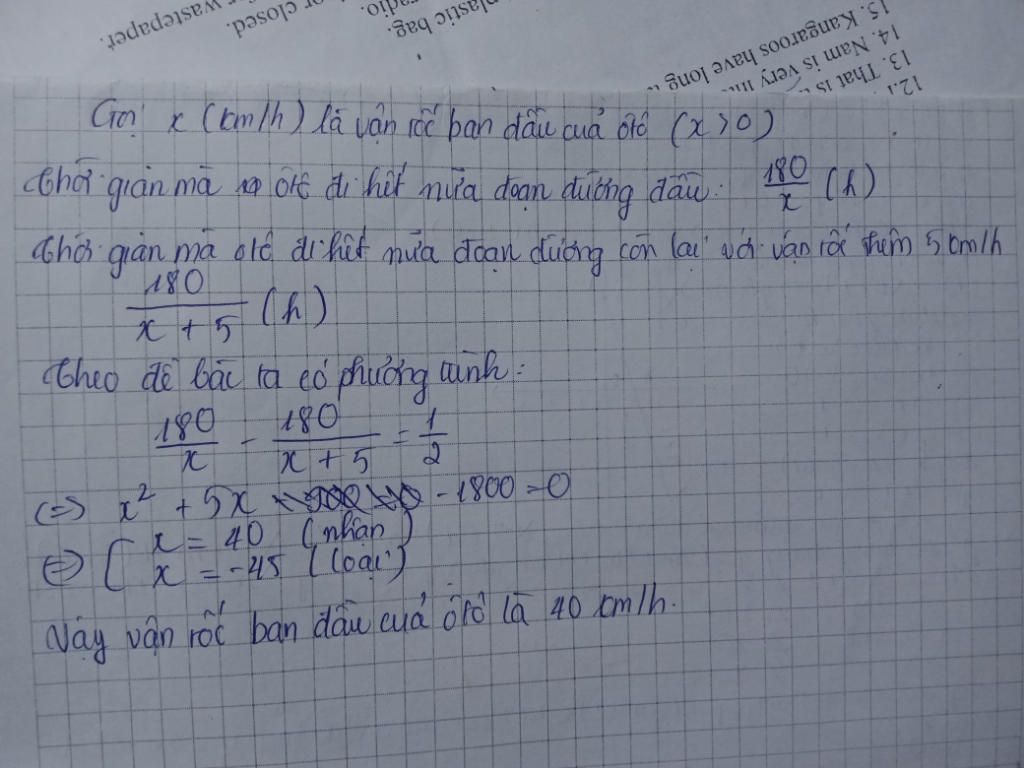 r wastepaper.
or closed.
plastic bag.
adio.
15. Kangaroos have long
14. Nam is very
13. That is
12.
Gọi x (km/h) là vận tốc ban đầu của ôtô (x > 0)
Thời gian mà ôtô đi hết nửa đoạn đường đầu: 180/x (h)
Thời gian mà ôtô đi hết nửa đoạn đường còn lại với vận tốc thêm 5 km/h
180/(x + 5) (h)
Theo đề bài ta có phương trình:
180/x - 180/(x + 5) = 1/2
<=> x² + 5x - 1800 = 0
<=> [ x = 40 (nhận)
x = -45 (loại)
Vậy vận tốc ban đầu của ôtô là 40 km/h.